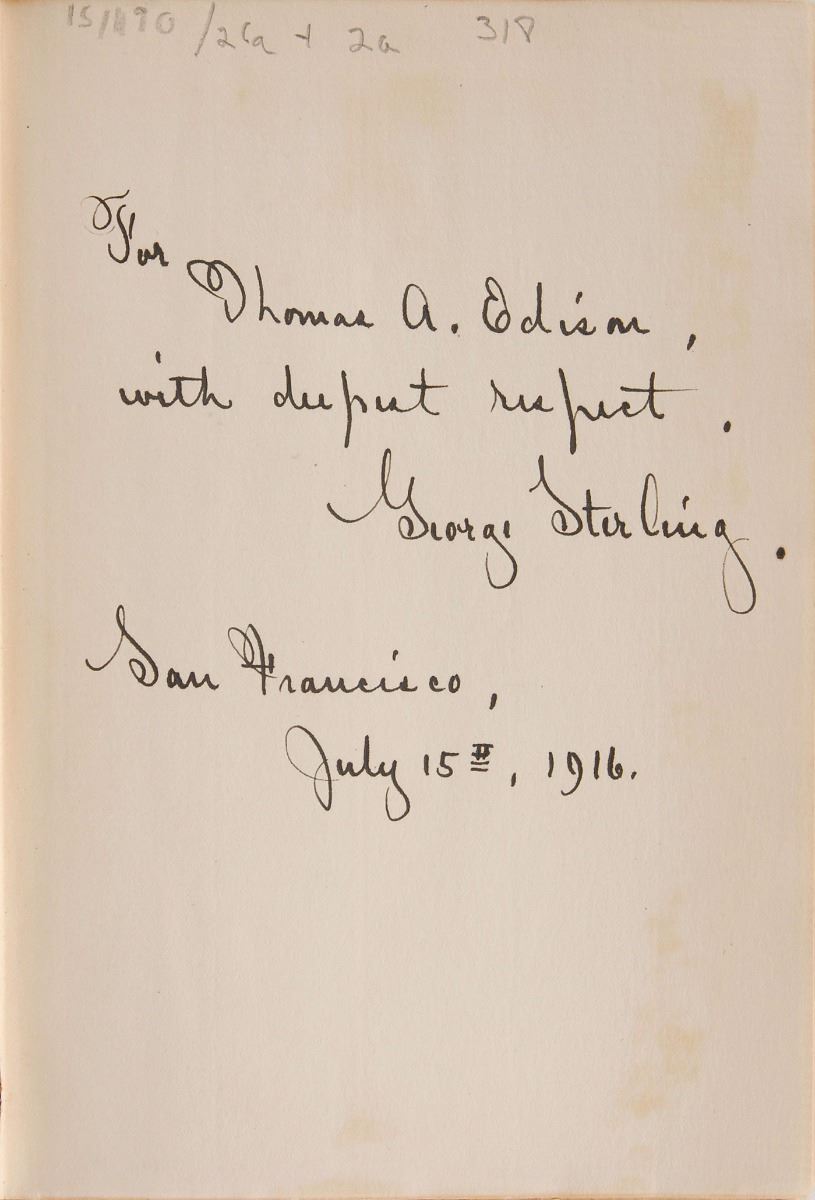 318
For
Thomas A. Edison,
with deepest respect.
George Sterling.
San Francisco,
July 15th, 1916.